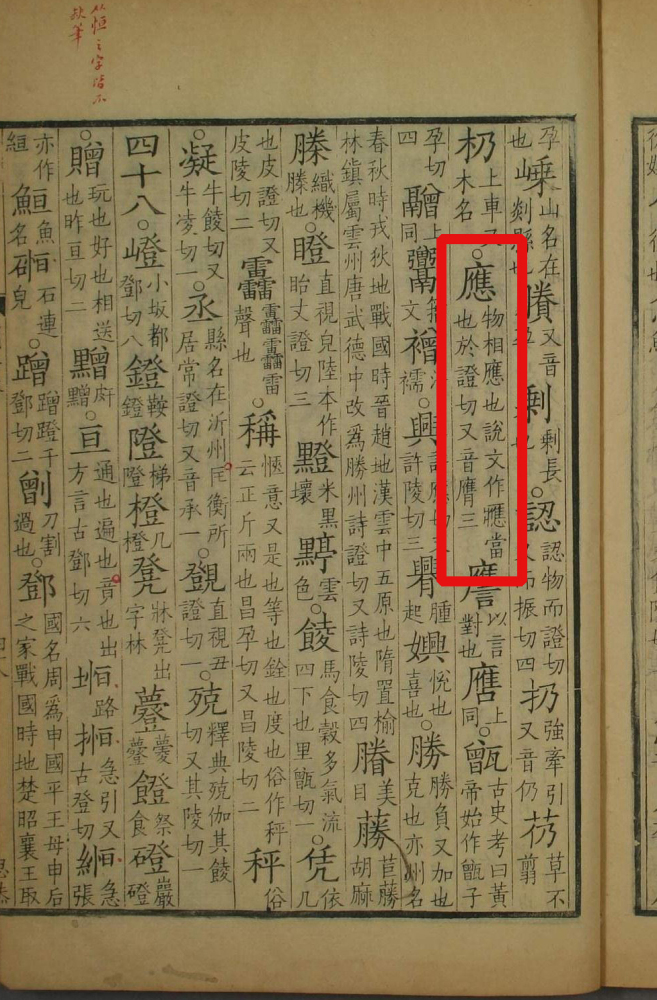 从恒之字皆不
缺筆
孕也嵊山名在剡縣也賸又音孕剩剩長也○認認物而證切又而振切四扔強牽引又音仍芿草不翦
杒上車又木名○應物相應也說文作𤻮當也於證切又音膺三譍以言對也𧭭上同○甑古史考曰黃帝始作甑子
孕切四䰝上同鬵文襘襦○興許應切又許陵切三臖腫起嬹悅也喜也○勝勝負又加也克也亦州名
春秋時戎狄地戰國時晉趙地漢雲中五原也隋置榆林鎮屬雲州唐武德中改爲勝州詩證切又詩陵切四䞉美目藤苣藤胡麻
榺織機榺也○瞪直視皃陸本作眙丈證切三米黑壞雲色○餕馬食穀多氣流四下也里甑切一○凭依几
也皮證切又皮陵切二靐靐靐雷聲也○稱愜意又是也等也銓也度也俗作秤云正斤兩也昌孕切又昌陵切二秤俗
○凝牛餕切又牛凌切一○丞縣名在沂州匡衡所居常證切又音承一○覴直視丑證切一○殑釋典殑伽其餕切又其陵切一
四十八○嶝小坂都鄧切八鐙鞍鐙隥梯隥橙几橙凳牀凳出字林䔲䔲食祭食磴巖磴
○贈玩也好也相送也昨亘切二○亘通也遍也竟也出方言古鄧切六堩路揯急引又古登切縆急張
亦作絚䱍魚名石連皃○蹭蹭蹬千鄧切二刀割過也○鄧國名周爲申國平王母申后之家戰國時地楚昭襄王取